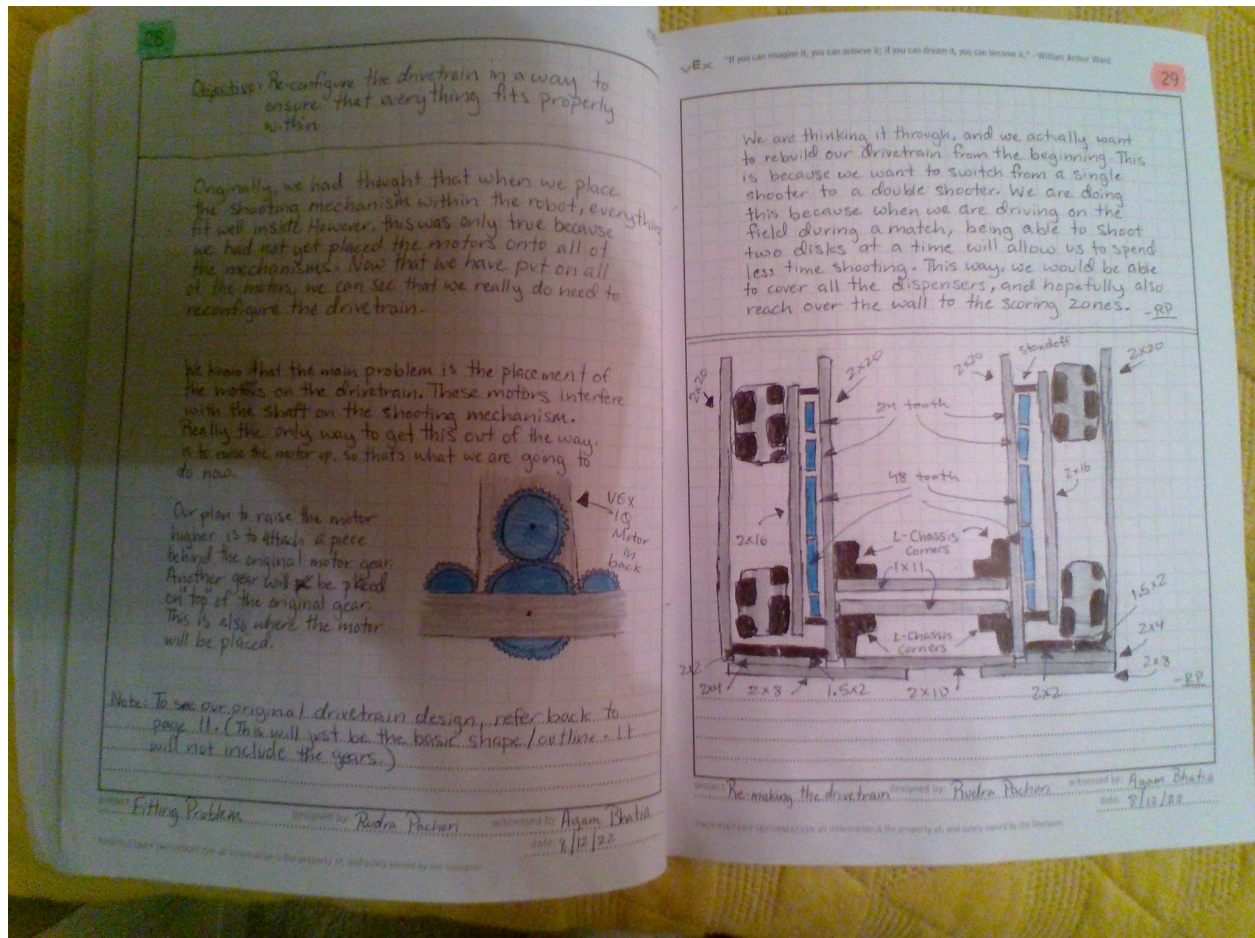 Objective: Re-configure the drivetrain in a way to
ensure that everything fits properly
within
Originally, we had thought that when we place
the shooting mechanism within the robot, everything
fit well inside. However, this was only true because
we had not yet placed the motors onto all of
the mechanisms. Now that we have put on all
of the motors, we can see that we really do need to
reconfigure the drivetrain.
We know that the main problem is the placement of
the motors on the drivetrain. These motors interfere
with the shaft on the shooting mechanism.
Really the only way to get this out of the way,
is to raise the motor up, so that's what we are going to
do now.
Our plan to raise the motor
higher is to attach a piece
behind the original motor gear.
Another gear will be placed
on "top" of the original gear.
This is also where the motor
will be placed.
VEX
IQ
Motor
in
back
Note: To see our original drivetrain design, refer back to
page 11. (This will just be the basic shape/outline. It
will not include the gears.)
project Fitting Problem designed by: Rudra Pachori witnessed by Agam Bhatia
date: 8/12/22
PROPRIETARY INFORMATION all information is the property of, and solely owned by the Designer.
VEX "If you can imagine it, you can achieve it; if you can dream it, you can become it." - William Arthur Ward
29
We are thinking it through, and we actually want
to rebuild our drivetrain from the beginning. This
is because we want to switch from a single
shooter to a double shooter. We are doing
this because when we are driving on the
field during a match, being able to shoot
two disks at a time will allow us to spend
less time shooting. This way, we would be able
to cover all the dispensers, and hopefully also
reach over the wall to the scoring zones. -RP
2x20
2x20
2x20
standoff
2x20
24 tooth
48 tooth
2x16
2x16
L-Chassis
Corners
1x11
L-Chassis
Corners
1.5x2
2x4
2x8
2x2
2x4
2x8
1.5x2
2x10
2x2
-RP
project Re-making the drivetrain designed by: Rudra Pachori witnessed by: Agam Bhatia
date: 8/12/22
PROPRIETARY INFORMATION all information is the property of, and solely owned by the Designer.